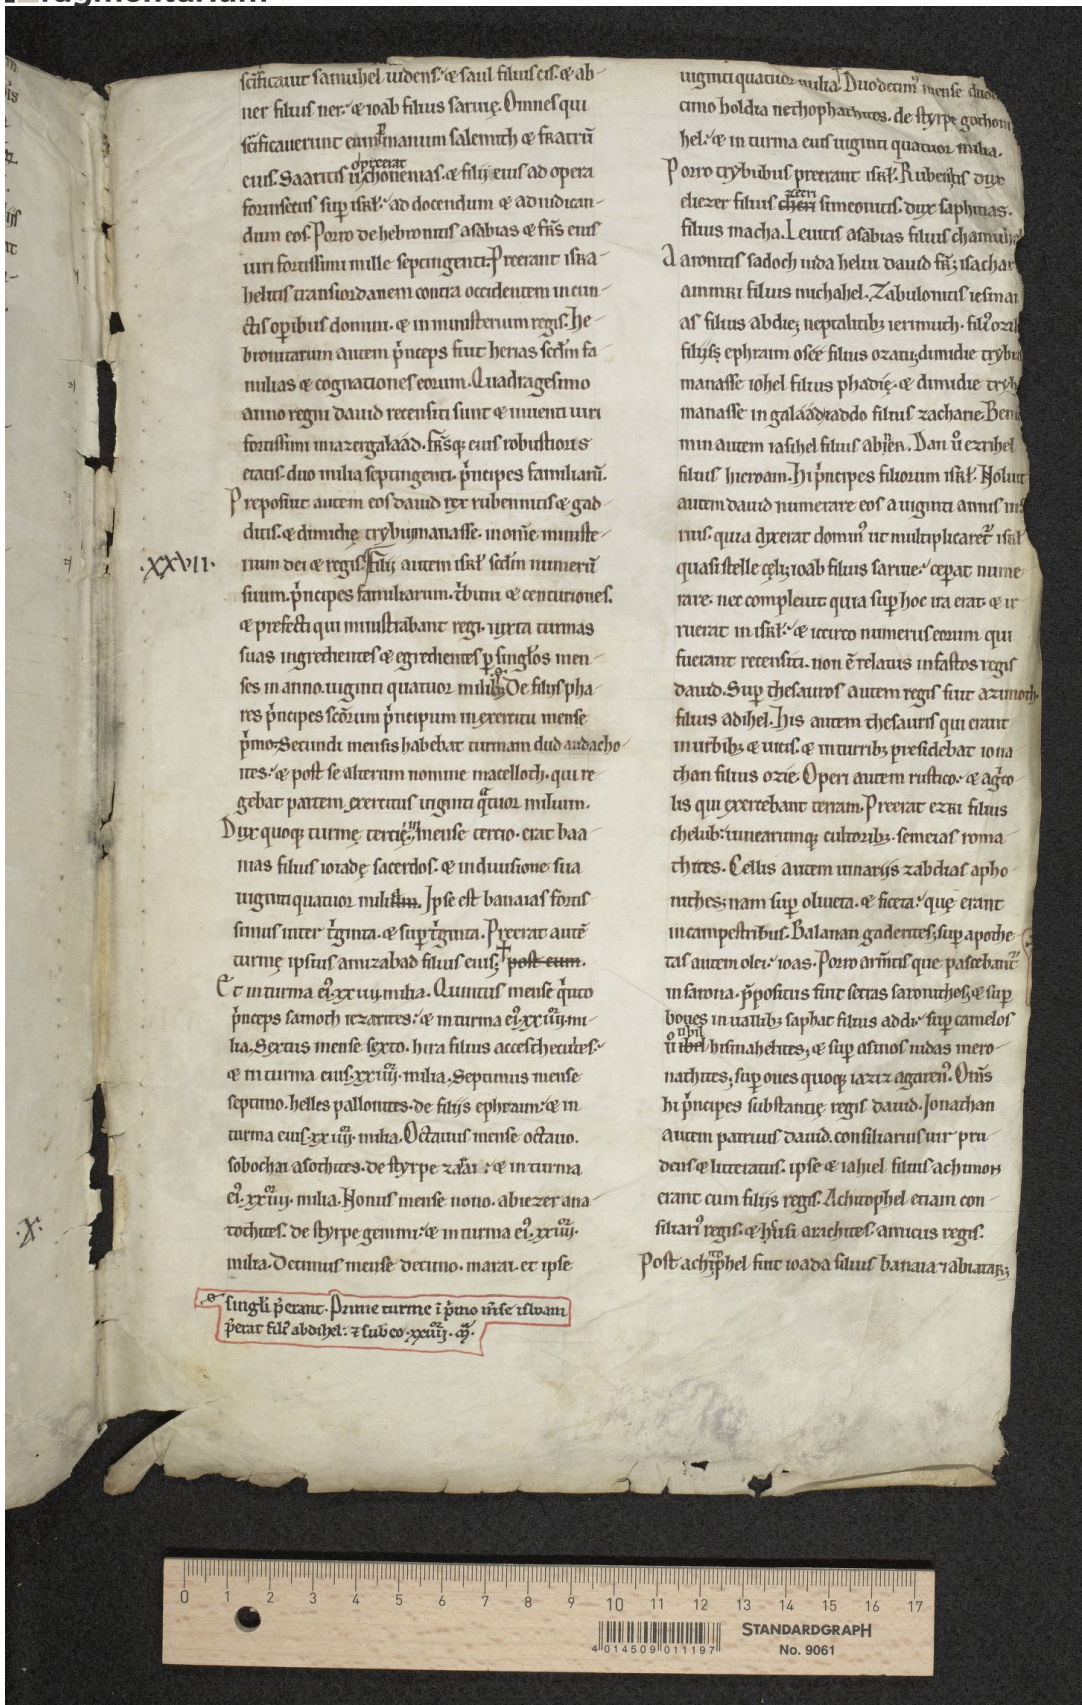 scificauit samuhel uidens. & saul filius cis. & ab-
ner filius ner. & ioab filius saruię. Omnes qui
scificauerunt eam manum salemith & fratrū
eius. Saaritis ů chonenias. & filij eius ad opera
forinsecus sup isrł. ad docendum & ad iudican-
dum eos. Porro de hebronitis asabias & fr̄s eius
uiri fortissimi mille septingenti. Preerant isra-
helitis transiordanem contra occidentem in cun-
ctis opibus domini. & in ministerium regis. He-
bronitarum autem p̉nceps fuit herias scdm fa-
milias & cognationes eorum. Quadragesimo
anno regni dauid recensiti sunt & inuenti uiri
fortissimi in iazergalaad. fr̄sq; eius robustioris
etatis. duo milia septingenti. p̉ncipes familiarū.
Preposuit autem eos dauid rex rubennitis & gad-
ditis. & dimidię trybui manasse. in om̄e ministe-
.XXVII. rium dei & regis. Filij autem isrł scdm numerū
suum. p̉ncipes familiarum. t̉buni & centuriones.
& prefecti qui ministrabant regi. iuxta turmas
suas ingredientes & egredientes p singłos men-
ses in anno. uiginti quatuor milib; De filijs pha-
res p̉nceps scōrum p̉ncipum in exercitu mense
p̉mo. Secundi mensis habebat turmam dudi audacho-
ites. & post se alterum nomine macelloth. qui re-
gebat partem exercitus uiginti qtuor milium.
Dux quoq; turmę tercię. in mense tercio. erat baa-
nias filius ioiadę sacerdos. & in diuisione sua
uiginti quatuor milium. Ipse est banaias fortis-
simus inter t̉ginta. & sup t̉ginta. Preerat autē
turmę ipsius amizabad filius eius; post eum.
Et in turma ei9 .xxiiij. milia. Quintus mense q̉nto
p̉nceps samoth iezarites. & in turma ei9 .xxiiij. mi-
lia. Sextus mense sexto. hira filius accesthecuites.
& in turma eius .xxiiij. milia. Septimus mense
septimo. helles pallonites. de filijs ephraim. & in
turma eius .xxiiij. milia. Octauus mense octauo.
sobochai asothites. de styrpe zarai. & in turma
ei9 .xxiiij. milia. Nonus mense nono. abiezer ana-
.X. tothites. de styrpe gemini. & in turma ei9 .xxiiij.
milia. Decimus mense decimo. marai. et ipse
singłi p̄erant. Prime turme ī p̉mo m̄se isboam
p̄erat fili9 abdihel. 7 sub eo .xxiiij.
uiginti quatuor milia. Duodecim9 mense duo
cimo holdia nethophathites. de styrpe gothoni
hel. & in turma eius uiginti quatuor milia.
Porro trybubus preerant isrł. Rubenitis dux
eliezer filius cheri zecri simeonitis. dux saphatias.
filius macha. Leuitis asabias filius chamuhel
Aaronitis sadoch iuda heliu dauid fr̄; isachar
ammri filius michahel. Zabulonitis iesmai
as filius abdie; neptalitib; ierimuth. fili9 ozi
filijs; ephraim osee filius ozatu; dimidie trybu
manasse iohel filius phadię. & dimidie tryb
manasse in galaad iaddo filius zacharie. Beni
min autem iasihel filius abner. Dan ů ezrihel
filius hieroam. Hi p̉ncipes filiorum isrł. Noluit
autem dauid numerare eos a uiginti annis inf
rius. quia dixerat domin9 ut multiplicaret isrł
quasi stelle cęli; ioab filius saruie. cęperat nume-
rare. nec compleuit quia sup hoc ira erat & ir-
ruerat in isrł. & iccirco numerus eorum qui
fuerant recensiti. non ē relatus in fastos regis
dauid. Sup thesauros autem regis fuit azimoth.
filius adihel. His autem thesauris qui erant
in urbib; & uicis. & in turrib; presidebat iona-
than filius ozie. Operi autem rustico. & ag̉co-
lis qui exercebant terram. Preerat ezri filius
chelub. uinearumq; cultorib;. semeias roma-
thites. Cellis autem uinarijs zabdias apho-
nithes; nam sup oliueta. & ficeta. quę erant
in campestribus. Balanan gaderites; sup apothe-
cas autem olei. ioas. Porro arm̄tis que pascebant
in sarona. p̄positus fuit setras saronithes; & sup
boues in uallib; saphat filius addi. sup camelos
ů ibil hismahelites; & sup asinos iudas mero-
nathites; sup oues quoq; iaziz agaren9. Om̄s
hi p̉ncipes substantię regis dauid. Jonathan
autem patruus dauid. consiliarius uir pru-
dens & literatus. ipse & iahiel filius achimoni
erant cum filijs regis. Achitophel etiam con-
siliari9 regis. & husi arachites. amicus regis.
Post achitophel fuit ioada filius banaia 7 abiatar;
0 1 2 3 4 5 6 7 8 9 10 11 12 13 14 15 16 17
STANDARDGRAPH
No. 9061
4 014509 011197